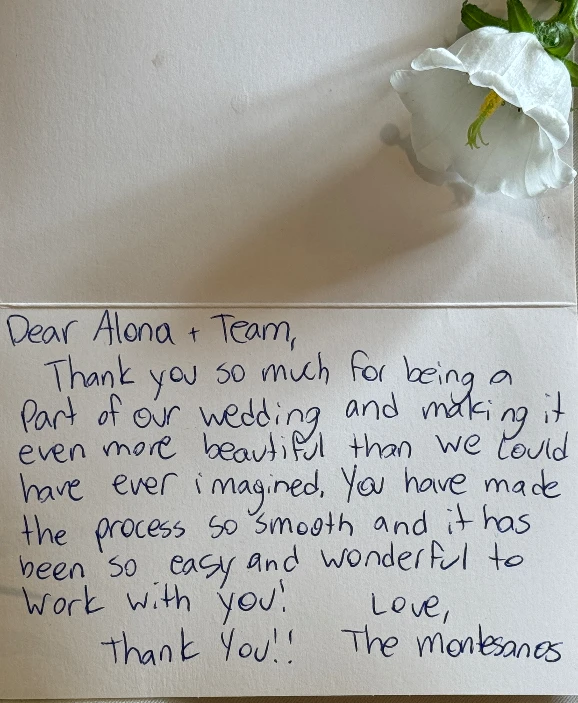 Dear Alona + Team,
Thank you so much for being a
part of our wedding and making it
even more beautiful than we could
have ever imagined. You have made
the process so smooth and it has
been so easy and wonderful to
work with you!
Love,
Thank You!! The Montesanos